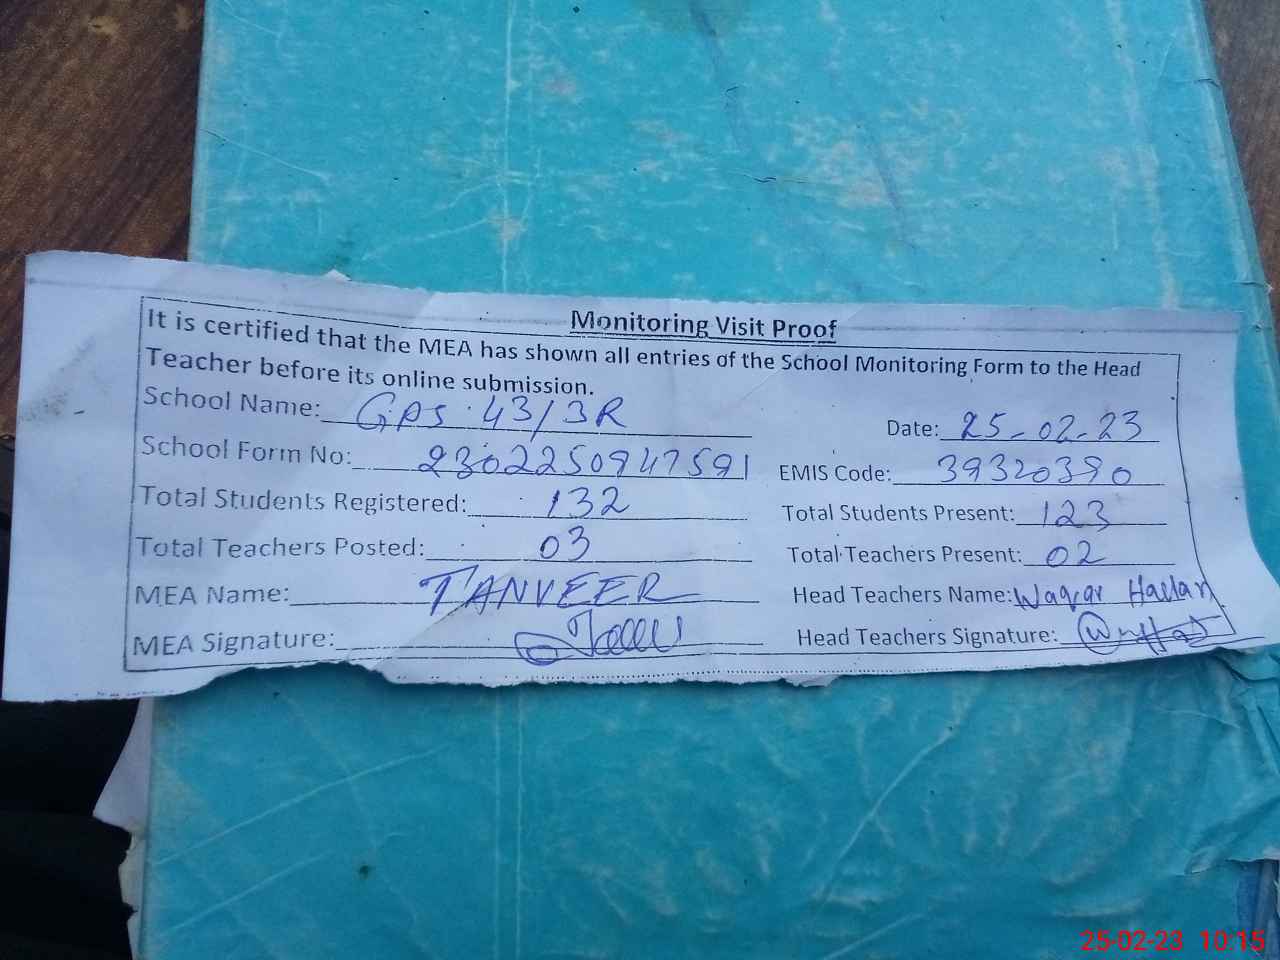 Monitoring Visit Proof
It is certified that the MEA has shown all entries of the School Monitoring Form to the Head
Teacher before its online submission.
School Name: GPS 43/3R
Date: 25-02-23
School Form No: 2302250947591
EMIS Code: 39320390
Total Students Registered: 132
Total Students Present: 123
Total Teachers Posted: 03
Total Teachers Present: 02
MEA Name: TANVEER
Head Teachers Name: Waqar
MEA Signature:
Head Teachers Signature:
25-02-23 10:15